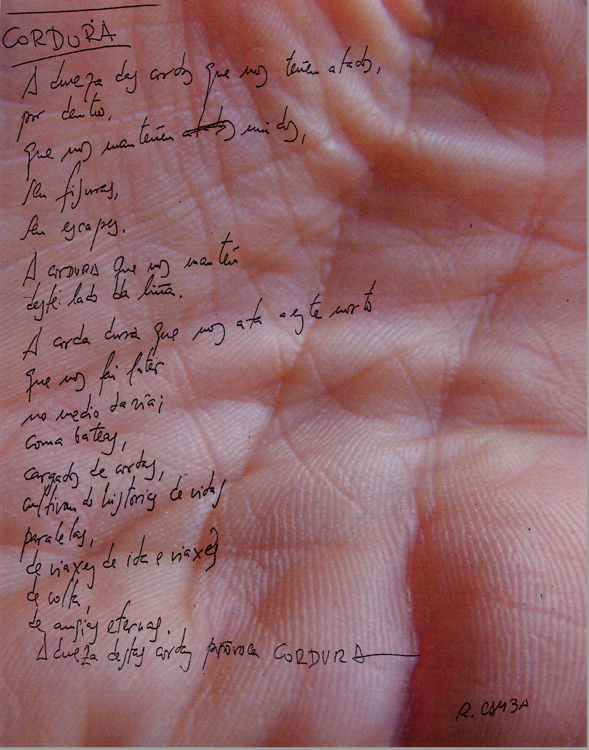 CORDURA
A dureza das cordas que nos teñen atados,
por dentro,
que nos manteñen unidos,
sen fisuras,
sen escapes.
A CORDURA que nos mantén
deste lado da liña.
A corda dura que nos ata a este
que nos fai
no medio da ría;
coma bateas,
cargados de cordas,
cultivando historias de vidas
paralelas,
de viaxes de ida e viaxes
de volta,
de ansias eternas.
A dureza destas cordas provoca CORDURA
R.